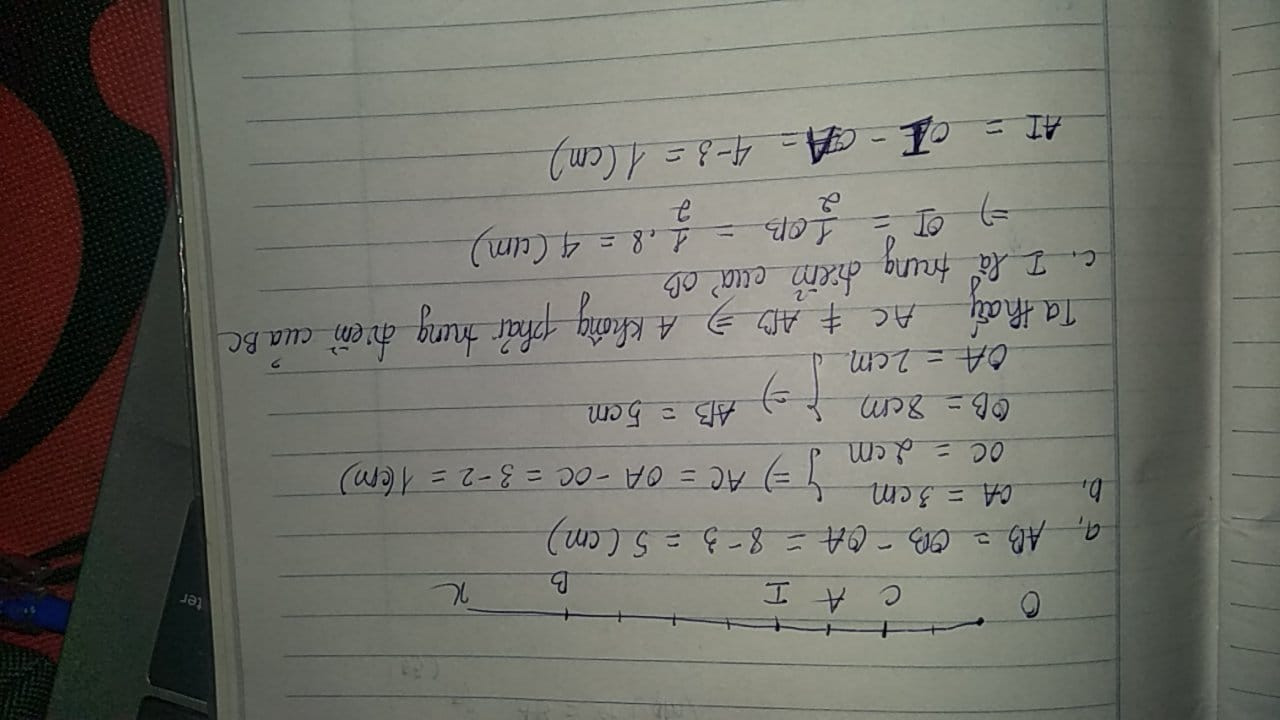 O C A I B x
a, AB = OB - OA = 8 - 3 = 5 (cm)
b, OA = 3cm
OC = 2cm } => AC = OA - OC = 3 - 2 = 1 (cm)
OB = 8cm
OA = 2cm } => AB = 5cm
Ta thấy AC ≠ AB => A không phải trung điểm của BC
c. I là trung điểm của OB
=> OI = 1/2 OB = 1/2 . 8 = 4 (cm)
AI = OI - OA = 4 - 3 = 1 (cm)
ter